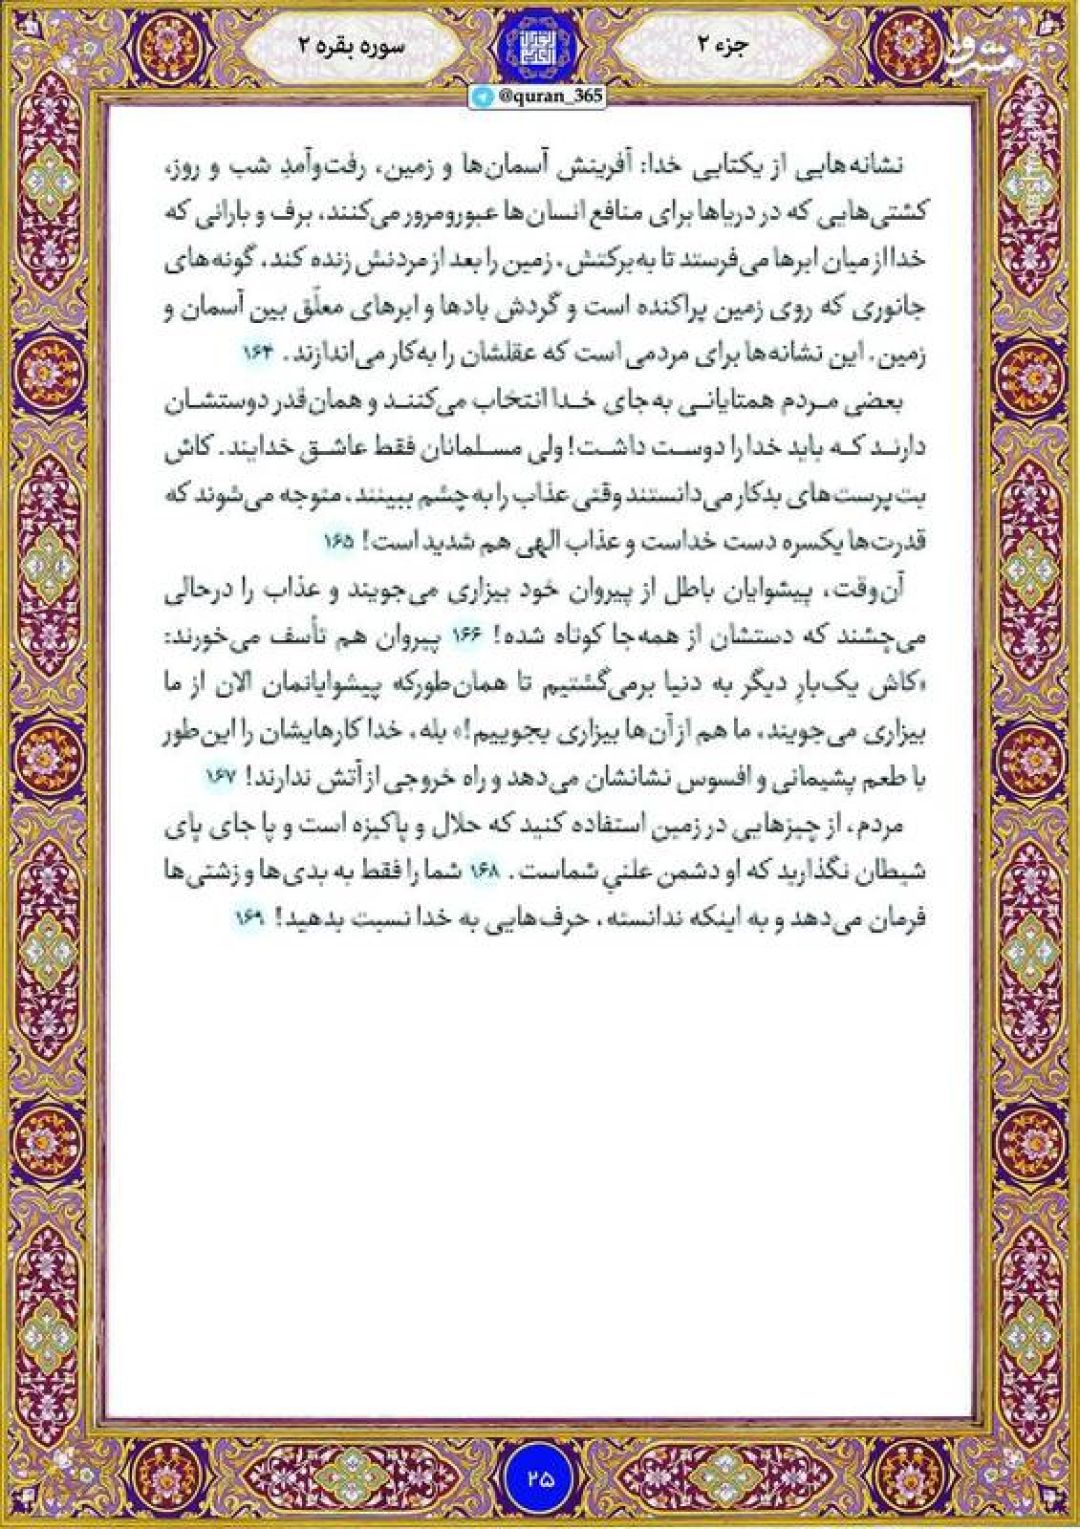 جزء ۲
سوره بقره ۲
@quran_365
نشانه‌هایی از یکتایی خدا: آفرینش آسمان‌ها و زمین، رفت‌وآمدِ شب و روز،
کشتی‌هایی که در دریاها برای منافع انسان‌ها عبورومرور می‌کنند، برف و بارانی که
خدا از میان ابرها می‌فرستد تا به‌برکتش، زمین را بعد از مردنش زنده کند، گونه‌های
جانوری که روی زمین پراکنده است و گردش بادها و ابرهای معلّق بین آسمان و
زمین. این نشانه‌ها برای مردمی است که عقلشان را به‌کار می‌اندازند. ۱۶۴
بعضی مردم همتایانی به‌جای خدا انتخاب می‌کنند و همان‌قدر دوستشان
دارند که باید خدا را دوست داشت! ولی مسلمانان فقط عاشق خدایند. کاش
بت‌پرست‌های بدکار می‌دانستند وقتی عذاب را به‌چشم ببینند، متوجه می‌شوند که
قدرت‌ها یکسره دست خداست و عذاب الهی هم شدید است! ۱۶۵
آن‌وقت، پیشوایان باطل از پیروان خود بیزاری می‌جویند و عذاب را درحالی
می‌چشند که دستشان از همه‌جا کوتاه شده! ۱۶۶ پیروان هم تأسف می‌خورند:
«کاش یک‌بارِ دیگر به دنیا برمی‌گشتیم تا همان‌طورکه پیشوایانمان الان از ما
بیزاری می‌جویند، ما هم از آن‌ها بیزاری بجوییم!» بله، خدا کارهایشان را این‌طور
با طعم پشیمانی و افسوس نشانشان می‌دهد و راه خروجی از آتش ندارند! ۱۶۷
مردم، از چیزهایی در زمین استفاده کنید که حلال و پاکیزه است و پا جای پای
شیطان نگذارید که او دشمن علنیِ شماست. ۱۶۸ شما را فقط به بدی‌ها و زشتی‌ها
فرمان می‌دهد و به اینکه ندانسته، حرف‌هایی به خدا نسبت بدهید! ۱۶۹
۲۵